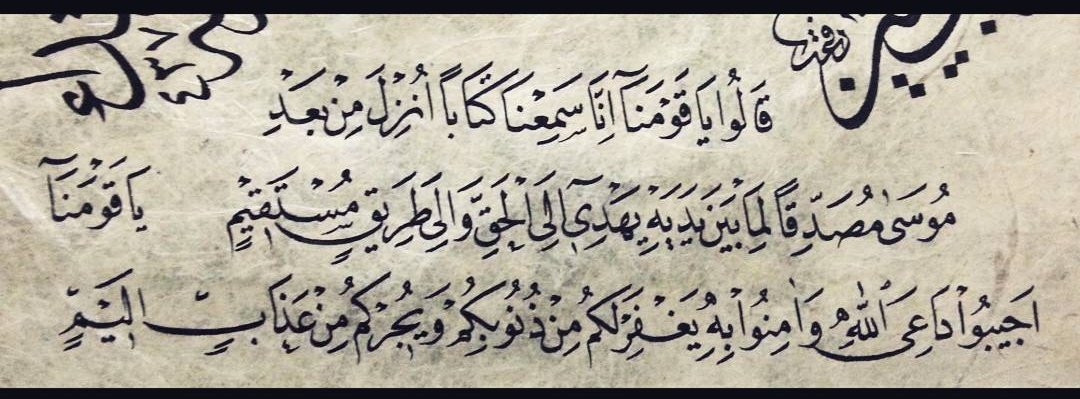 قَالُوا يَا قَوْمَنَآ اِنَّا سَمِعْنَا كِتَابًا اُنْزِلَ مِنْ بَعْدِ
مُوسٰى مُصَدِّقًا لِمَا بَيْنَ يَدَيْهِ يَهْدِٓى اِلَى الْحَقِّ وَاِلٰى طَرِيقٍ مُسْتَقِيمٍ يَا قَوْمَنَآ
اَجِيبُوا دَاعِىَ اللّٰهِ وَاٰمِنُوا بِهِ يَغْفِرْ لَكُمْ مِنْ ذُنُوبِكُمْ وَيُجِرْكُمْ مِنْ عَذَابٍ اَلِيمٍ